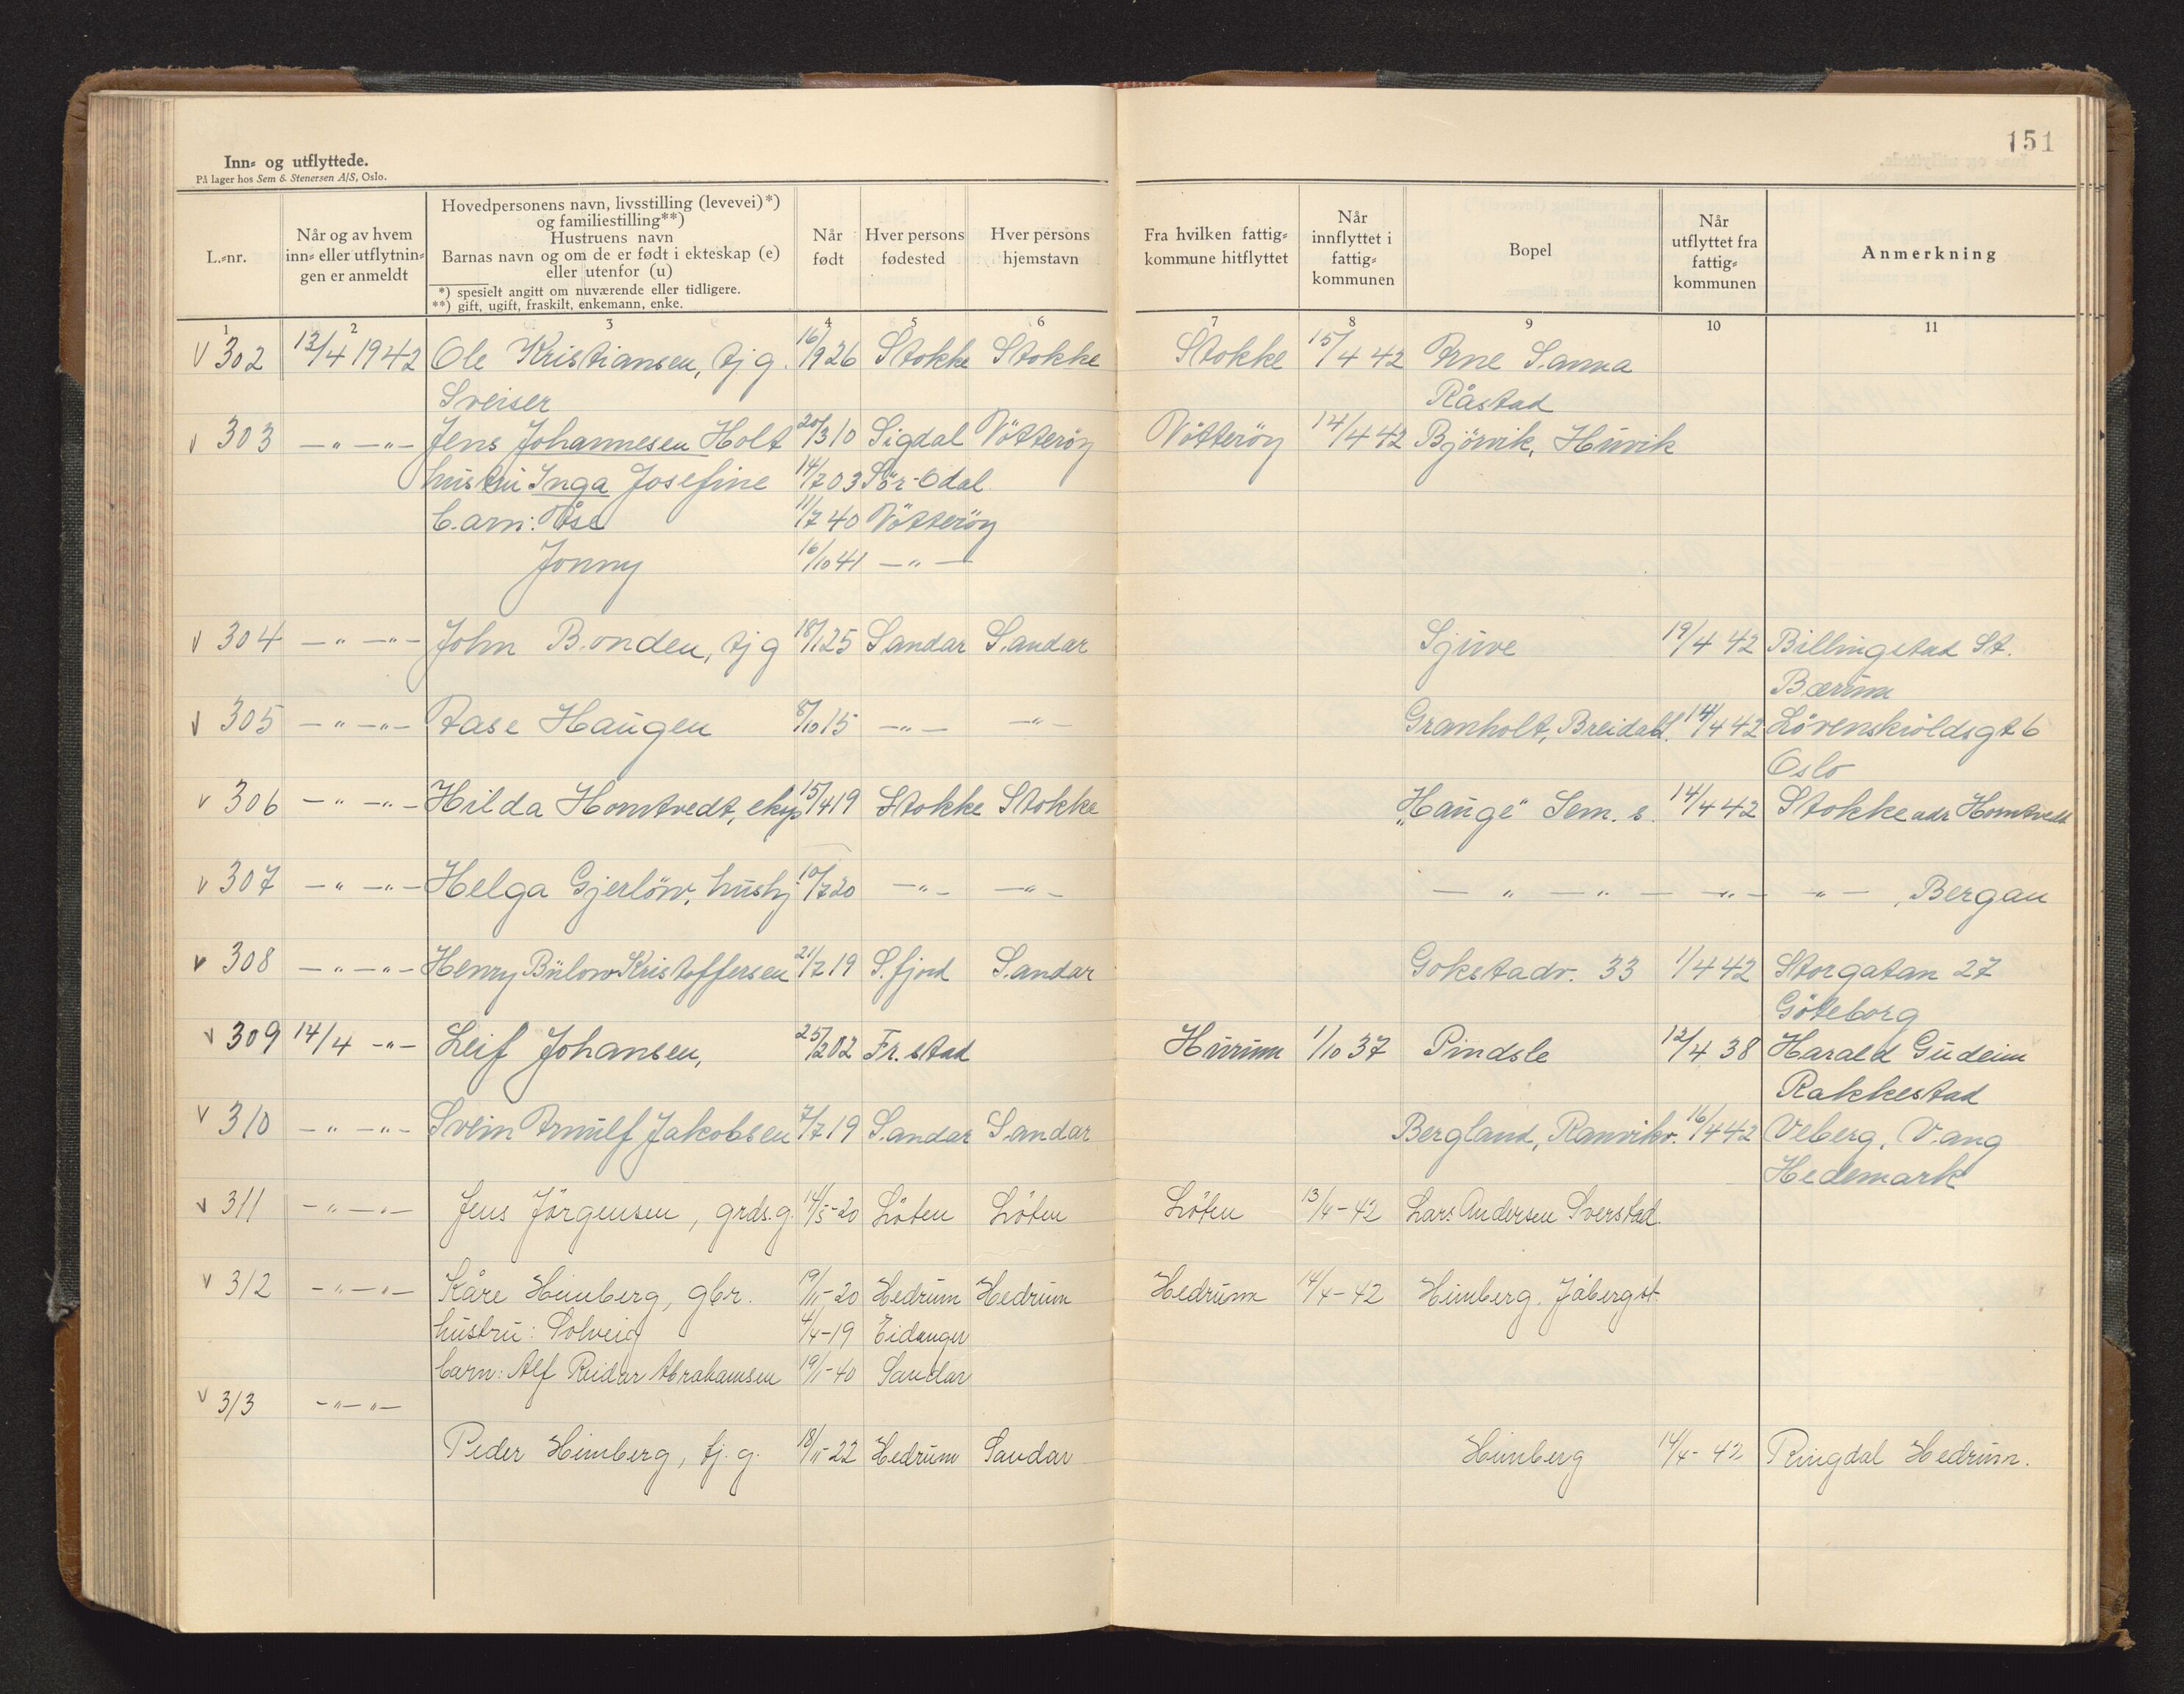 151
Inn= og utflyttede.
På lager hos Sem & Stenersen A/S, Oslo.
L.=nr.
Når og av hvem
inn= eller utflytnin=
gen er anmeldt
Hovedpersonens navn, livsstilling (levevei)*)
og familiestilling**)
Hustruens navn
Barnas navn og om de er født i ekteskap (e)
eller utenfor (u)
*) spesielt angitt om nuværende eller tidligere.
**) gift, ugift, fraskilt, enkemann, enke.
Når
født
Hver persons
fødested
Hver persons
hjemstavn
Fra hvilken fattig=
kommune hitflyttet
Når
innflyttet i
fattig=
kommunen
Bopel
Når
utflyttet fra
fattig=
kommunen
Anmerkning
1 2 3 4 5 6 7 8 9 10 11
V 302 13/4 1942 Ole Kristiansen, tj g. 16/9 26 Stokke Stokke Stokke 15/4 42 Arne Sanna
Sveiser Råstad
v 303 -"- -"- Jens Johannesen Holt 20/3 10 Sigdal Nötteröy Nötteröy 14/4 42 Björvik, Huvik
hustru Inga Josefine 14/7 03 Sör-Odal
barn: Åse 11/7 40 Nötteröy
Jonny 16/10 41 -"-
v 304 -"- -"- John Bonden, tj g 18/1 25 Sandar Sandar Sjuve 19/4 42 Billingstad St.
Bærum
v 305 -"- -"- Aase Haugen 8/10 15 -"- -"- Granholt, Breidabl. 14/4 42 Lövenskioldsgt 6
Oslo
v 306 -"- -"- Hilda Homtvedt, eksp 15/4 19 Stokke Stokke "Hauge" Sem. s. 14/4 42 Stokke adr Homtvedt
v 307 -"- -"- Helga Gjerlöw, hushj 10/7 20 -"- -"- -"- -"- -"- -"- , Bergan
v 308 -"- -"- Henry Bülow Kristoffersen 21/7 19 S.fjord Sandar Gokstadv. 33 1/4 42 Storgatan 27
Göteborg
v 309 14/4 -"- Leif Johansen, 25/2 02 Fr. stad Hurum 1/10 37 Pindsle 12/4 38 Harald Gudeim
Rakkestad
v 310 -"- -"- Svein Arnulf Jakobsen 7/7 19 Sandar Sandar Bergland, Ranvikv. 16/4 42 Veberg, Vang
Hedemark
v 311 -"- -"- Jens Jörgensen, grds.g. 14/5-20 Löten Löten Löten 13/4-42 Lars Andersen Sverstad.
v 312 -"- -"- Kåre Himberg, gbr. 19/11-20 Hedrum Hedrum Hedrum 14/4-42 Himberg. Jåbergst.
hustru: Solveig 4/4-19 Eidanger
barn: Alf Reidar Abrahamsen 19/1-40 Sandar
v 313 -"- -"-
Peder Himberg, tj. g. 18/11-22 Hedrum Sandar Himberg 14/4-42 Ringdal Hedrum.